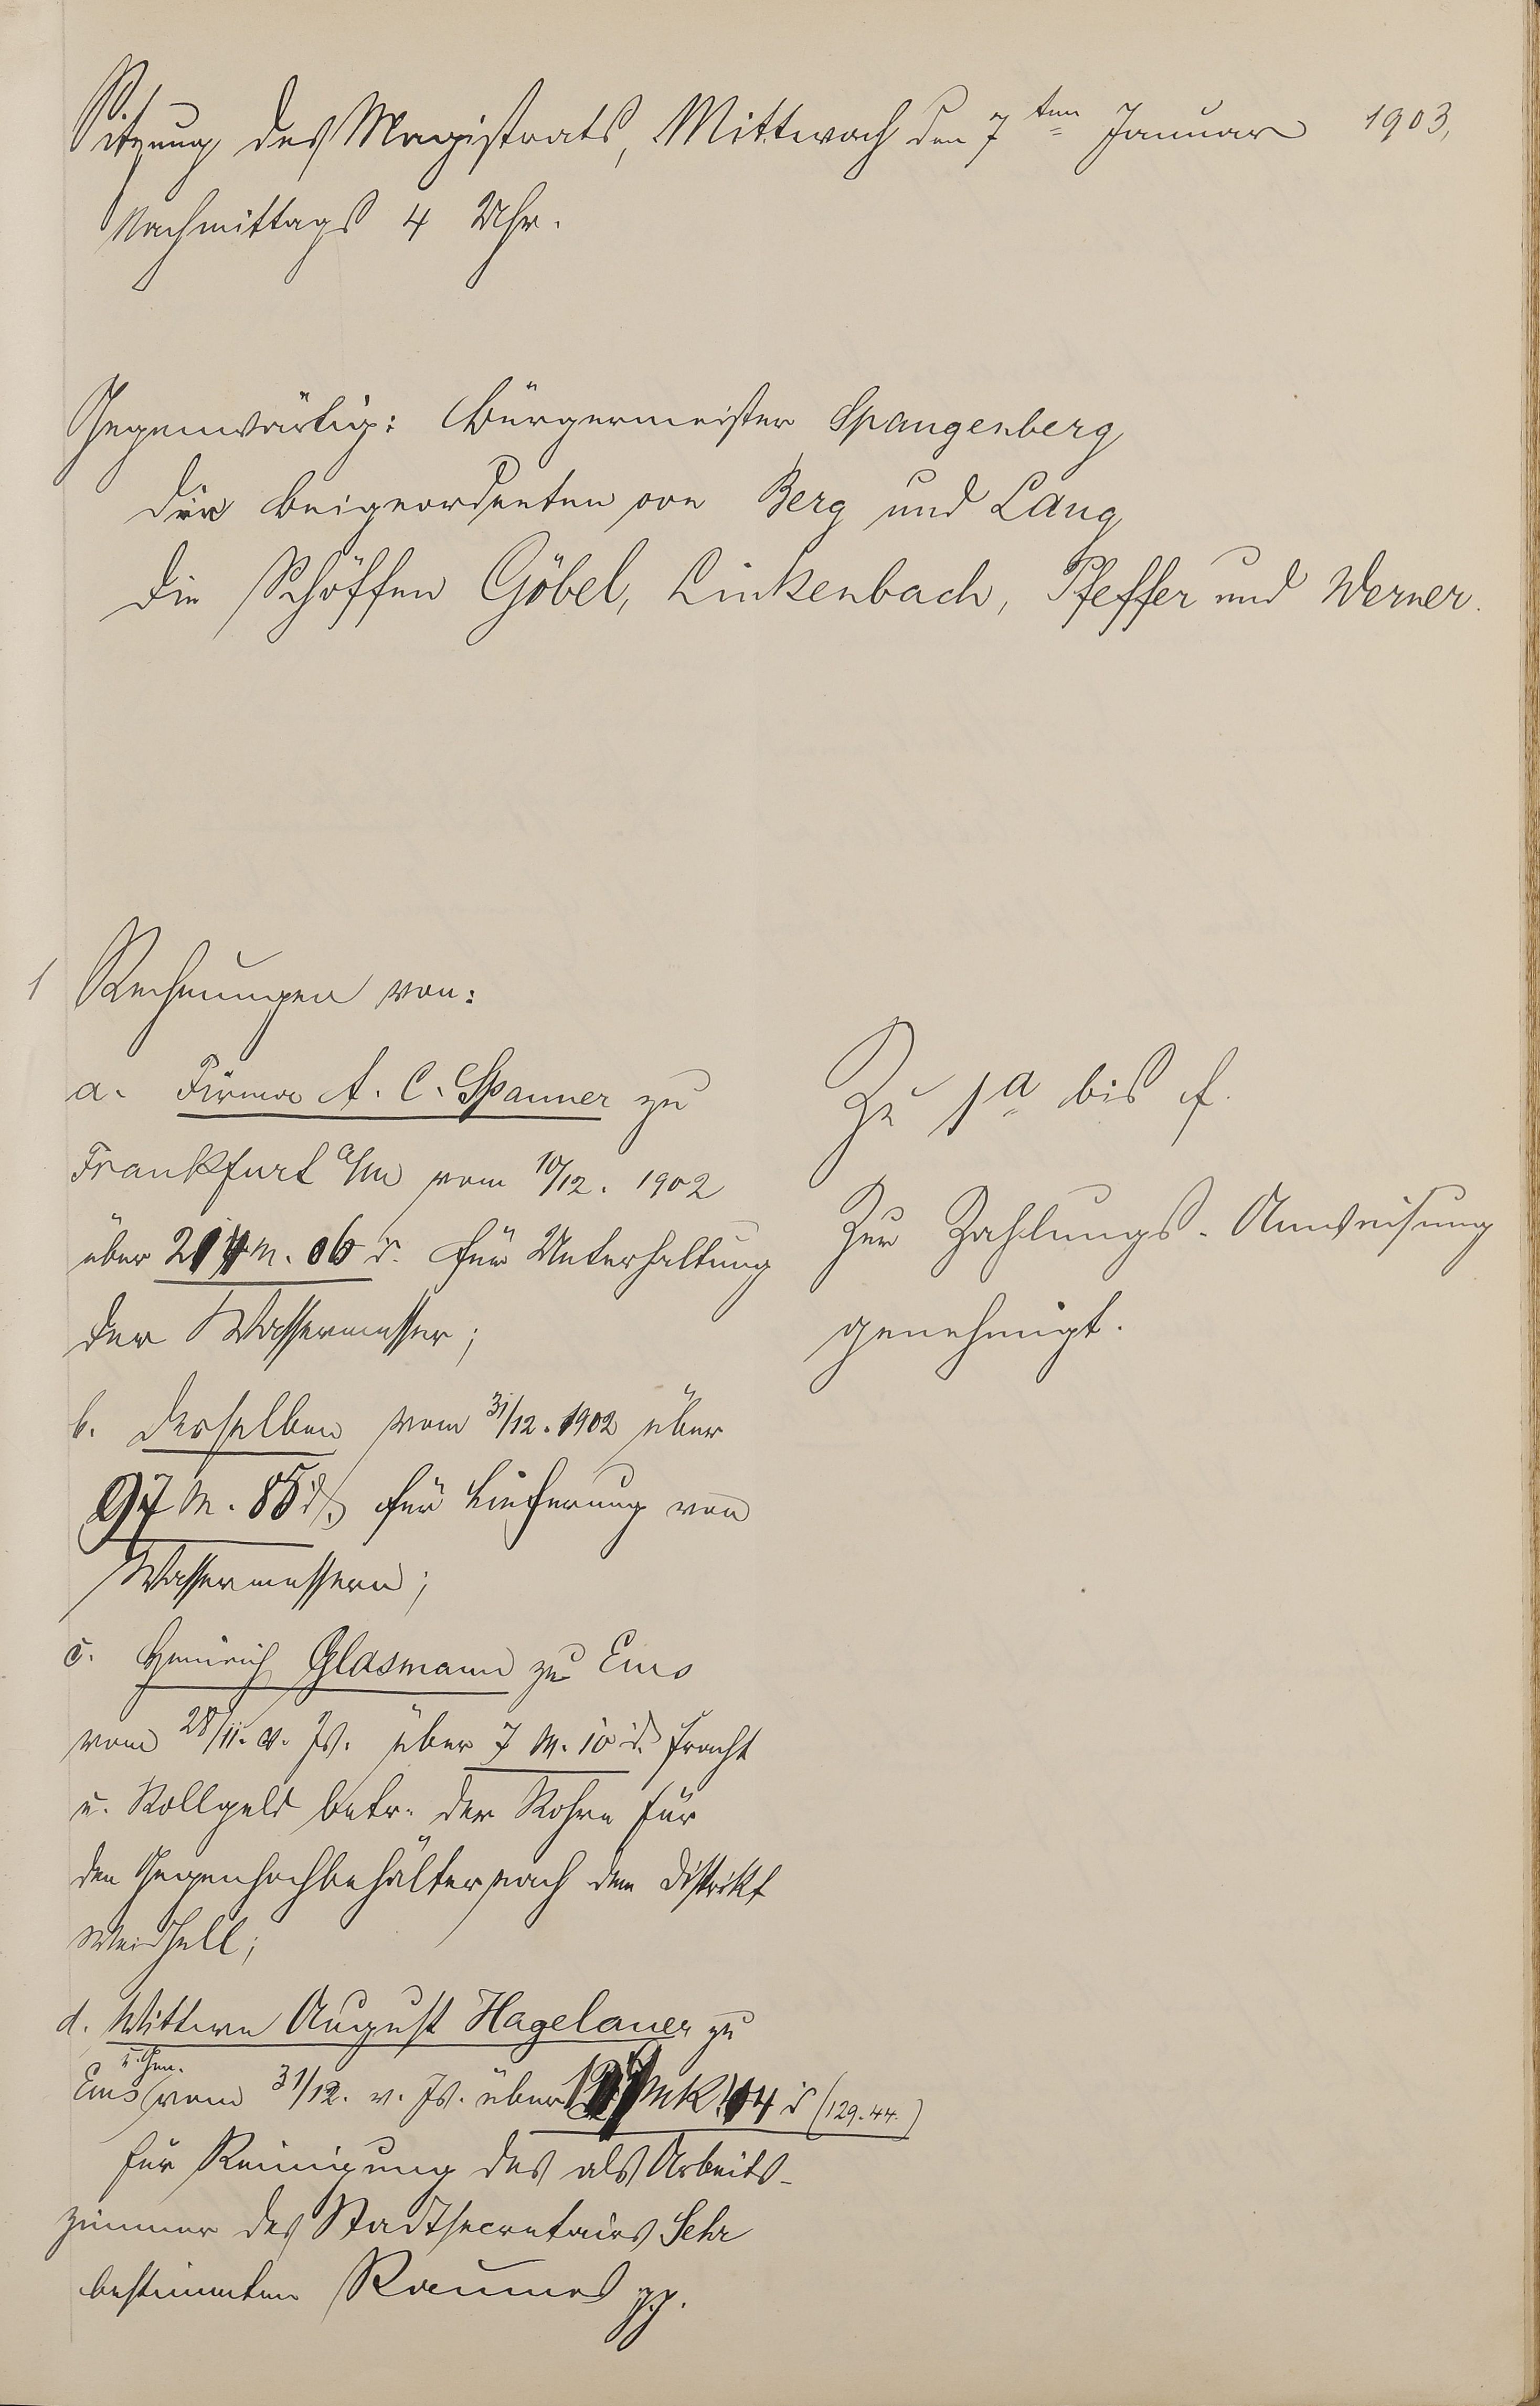 Sitzung des Magistrats, Mittwoch den 7ten Januar 1903,
Nachmittags 4 Uhr.
Gegenwärtig: Bürgermeister Spangenberg
die Beigeordneten von Berg und Lang
die Schöffen Göbel, Linkenbach, Pfeffer und Werner.
1 Rechnungen von:
a. Firma A. C. Spanner zu
Frankfurt a/m vom 10/12. 1902
über 214 M. 06 d. für Unterhaltung
der Wassermesser;
b. derselben vom 31/12. 1902 über
97 M. 85 d. für Lieferung von
Wassermessern;
c. Heinrich Glasmann zu Ems
vom 28/11. v. Js. über 7 M. 10 d. Fracht
u. Rollgeld betr. der Rohre für
den Gegenhochbehälter nach dem Distrikt
Weidhell;
d. Wittwe August Hagelauer zu
Ems u. Gen. vom 31/12. v. Js. über Mk. 44 d (129.44.)
für Reinigung des als Arbeits-
zimmer des Stadtsecretairs Sehr
bestimmten Raumes pp.
Zu 1a bis f.
Zur Zahlungs-Anweisung
genehmigt.